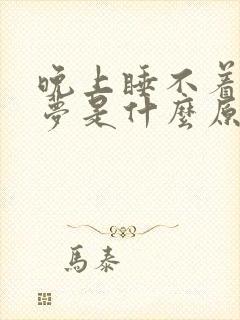 晚上睡不着
夢是什麼原
馬泰